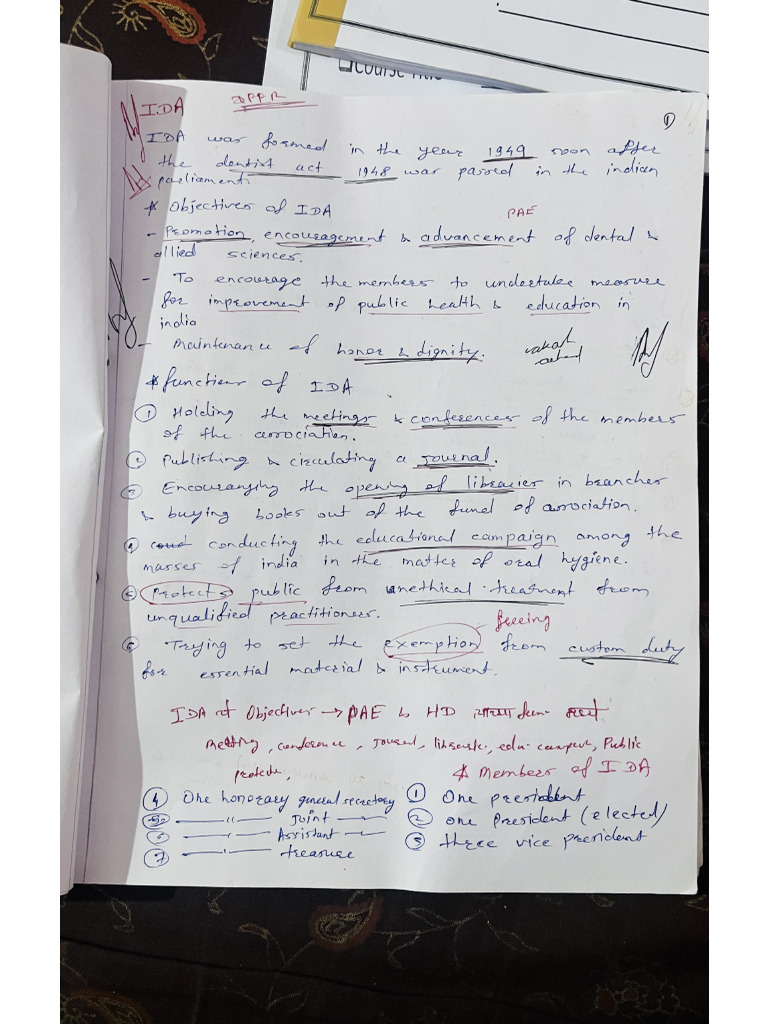 Course Title
I.DA DPPR
①
IDA was formed in the year 1949 soon after
the dentist act 1948 was passed in the indian
parliament.
* Objectives of IDA PAE
- Promotion, encouragement & advancement of dental &
allied sciences.
- To encourage the members to undertake measure
for improvement of public health & education in
india
- Maintenance of honor & dignity.
* functions of IDA
① Holding the meetings & conferences of the members
of the association.
② Publishing & circulating a journal.
③ Encouranging the opening of libraries in branches
& buying books out of the fund of association.
④ conducting the educational campaign among the
masses of india in the matter of oral hygiene.
⑤ Protects public from unethical treatment from
unqualified practitioners.
freeing
⑥ Trying to set the exemption from custom duty
for essential material & instrument.
IDA Objectives → PAE & HD
Meeting, conference, Journal, edu. Public
* Members of IDA
① One president
② one President (elected)
③ three vice president
④ One honorary general secretary
⑤ —— 〃 —— Joint ——
⑥ —— 〃 —— Assistant ——
⑦ —— 〃 —— treasure